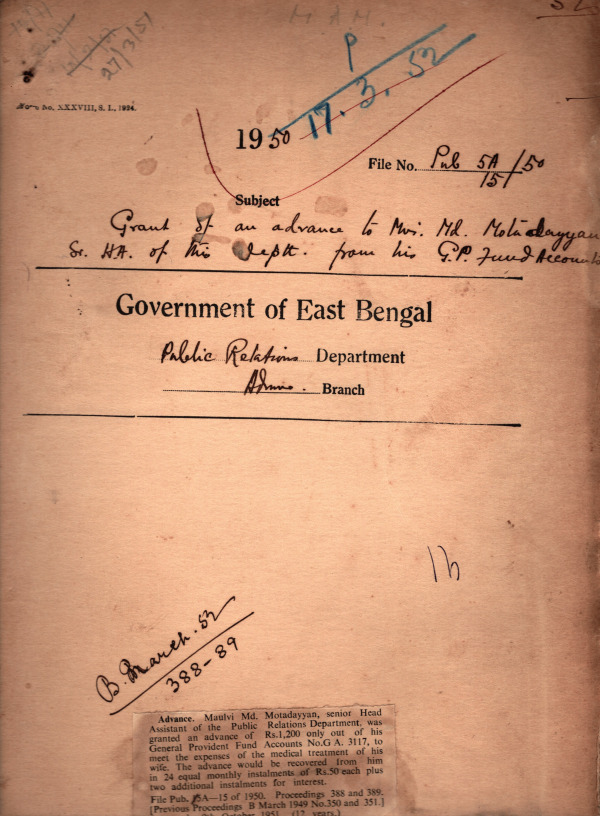 27/3/51
P
17.3.52
Form No. XXXVIII, S. I., 1924.
1950
File No. Pub 5A/50
15/
Subject
Grant of an advance to Mvi. Md. Motadayyan
Sr. HA. of this Deptt. from his G.P. Fund Accounts
Government of East Bengal
Public Relations Department
Admn. Branch
B. March. 52
388-89
Advance. Maulvi Md. Motadayyan, senior Head
Assistant of the Public Relations Department, was
granted an advance of Rs.1,200 only out of his
General Provident Fund Accounts No.G A. 3117, to
meet the expenses of the medical treatment of his
wife. The advance would be recovered from him
in 24 equal monthly instalments of Rs.50 each plus
two additional instalments for interest.
File Pub. 5A—15 of 1950. Proceedings 388 and 389.
[Previous Proceedings B March 1949 No.350 and 351.]
October 1951. (12 years.)